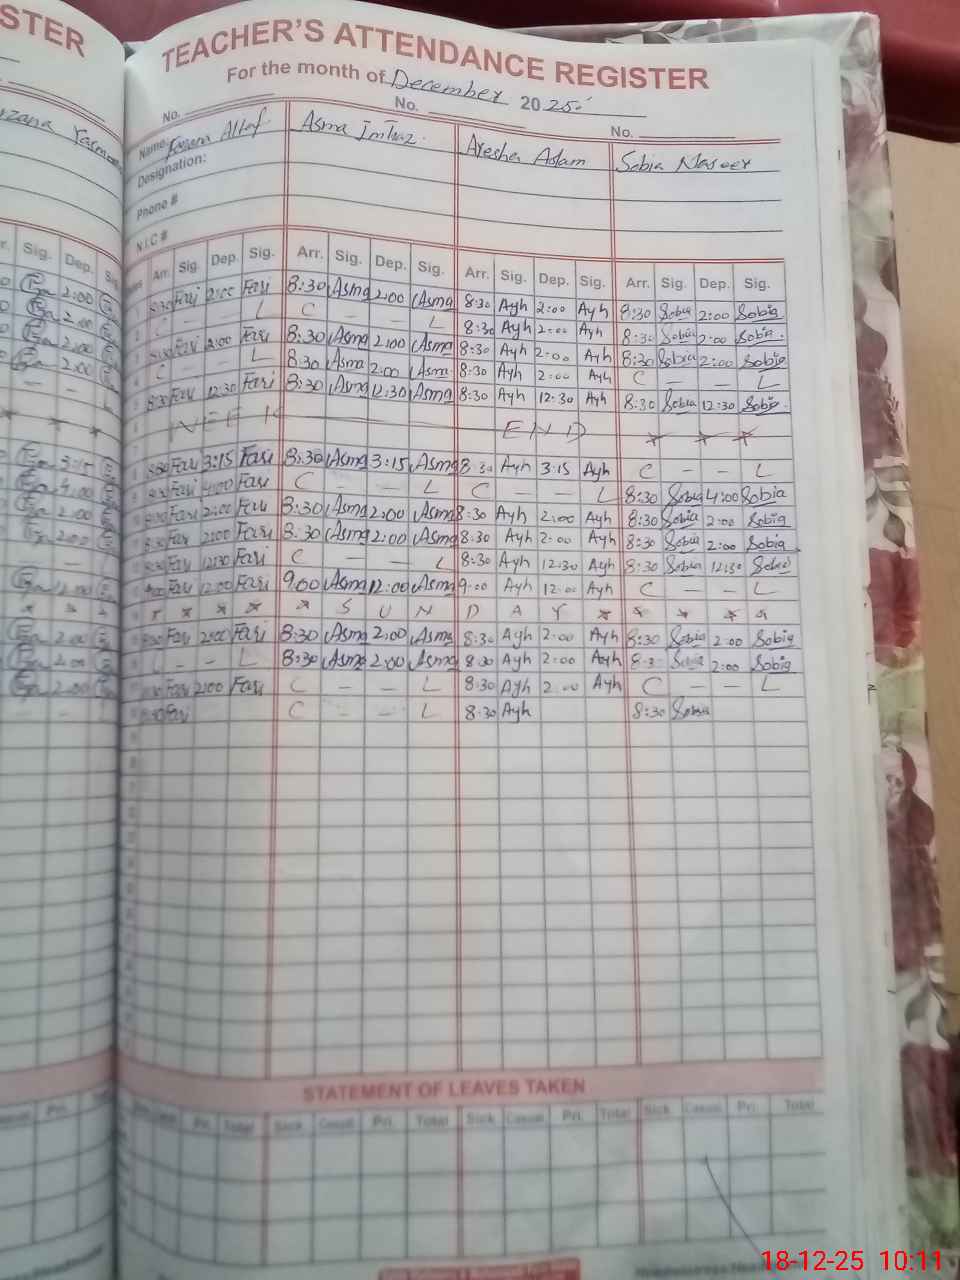 STER
TEACHER'S ATTENDANCE REGISTER
For the month of December 2025
No. No. No.
Name: Altaf Asma Imtiaz Ayesha Aslam Sobia Naseer
Designation:
Phone #
N.I.C #
Sig. Dep. Arr. Sig. Dep. Sig. Arr. Sig. Dep. Sig. Arr. Sig. Dep. Sig. Arr. Sig. Dep. Sig.
2:00 8:30 Fari 2:00 Fari 8:30 Asma 2:00 Asma 8:30 Ayh 2:00 Ayh 8:30 Sobia 2:00 Sobia
2:00 C – – L C – – L 8:30 Ayh 2:00 Ayh 8:30 Sobia 2:00 Sobia
2:00 8:30 Fari 2:00 Fari 8:30 Asma 2:00 Asma 8:30 Ayh 2:00 Ayh 8:30 Sobia 2:00 Sobia
2:00 C – – L 8:30 Asma 2:00 Asma 8:30 Ayh 2:00 Ayh C – – L
8:30 Fari 12:30 Fari 8:30 Asma 12:30 Asma 8:30 Ayh 12:30 Ayh 8:30 Sobia 12:30 Sobia
WEEK END
3:15 8:30 Fari 3:15 Fari 8:30 Asma 3:15 Asma 8:30 Ayh 3:15 Ayh C – – L
4:00 8:30 Fari 4:00 Fari C – – L C – – L 8:30 Sobia 4:00 Sobia
2:00 8:30 Fari 2:00 Fari 8:30 Asma 2:00 Asma 8:30 Ayh 2:00 Ayh 8:30 Sobia 2:00 Sobia
2:00 8:30 Fari 2:00 Fari 8:30 Asma 2:00 Asma 8:30 Ayh 2:00 Ayh 8:30 Sobia 2:00 Sobia
8:30 Fari 12:30 Fari C – – L 8:30 Ayh 12:30 Ayh 8:30 Sobia 12:30 Sobia
9:00 Fari 12:00 Fari 9:00 Asma 12:00 Asma 9:00 Ayh 12:00 Ayh C – – L
S U N D A Y
2:00 8:30 Fari 2:00 Fari 8:30 Asma 2:00 Asma 8:30 Ayh 2:00 Ayh 8:30 Sobia 2:00 Sobia
2:00 – – L 8:30 Asma 2:00 Asma 8:30 Ayh 2:00 Ayh 8:3 Sobia 2:00 Sobia
2:00 8:30 Fari 2:00 Fari C – – L 8:30 Ayh 2:00 Ayh C – – L
8:30 Fari C – – L 8:30 Ayh 8:30 Sobia
STATEMENT OF LEAVES TAKEN
Pri. Pri. Total Sick Casual Pri. Total Sick Casual Pri. Total Sick Casual Pri. Total
18-12-25 10:11